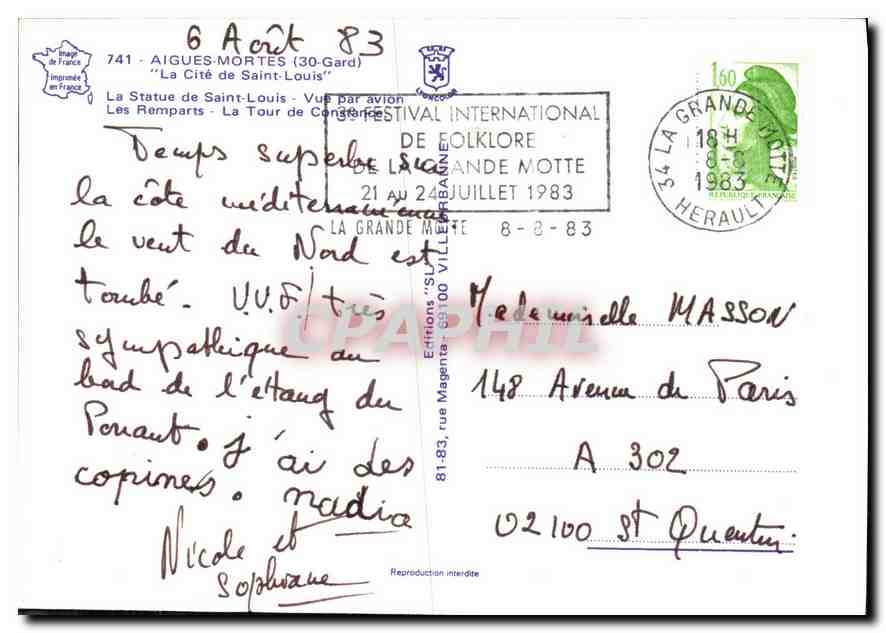 6 Août 83
Image
de France
Imprimée
en France
741 - AIGUES-MORTES (30-Gard)
"La Cité de Saint-Louis"
La Statue de Saint-Louis - Vue par avion
Les Remparts - La Tour de Constance
LYONCOLOR
3e FESTIVAL INTERNATIONAL
DE FOLKLORE
DE LA GRANDE MOTTE
21 AU 24 JUILLET 1983
LA GRANDE MOTTE 8-8-83
1,60
REPUBLIQUE FRANÇAISE
34 LA GRANDE MOTTE
18 H
8-8
1983
HERAULT
Temps superbe sur
la côte méditerranéenne
le vent du Nord est
tombé. V.V.F. très
sympathique au
bord de l'étang du
Ponant. j'ai des
copines. nadia
Nicole et
Sophiane
Editions "SL" VILLEURBANNE
81-83, rue Magenta - 69100
Mademoiselle MASSON
148 Avenue de Paris
A 302
02100 St Quentin
Reproduction interdite
CPAPHIL